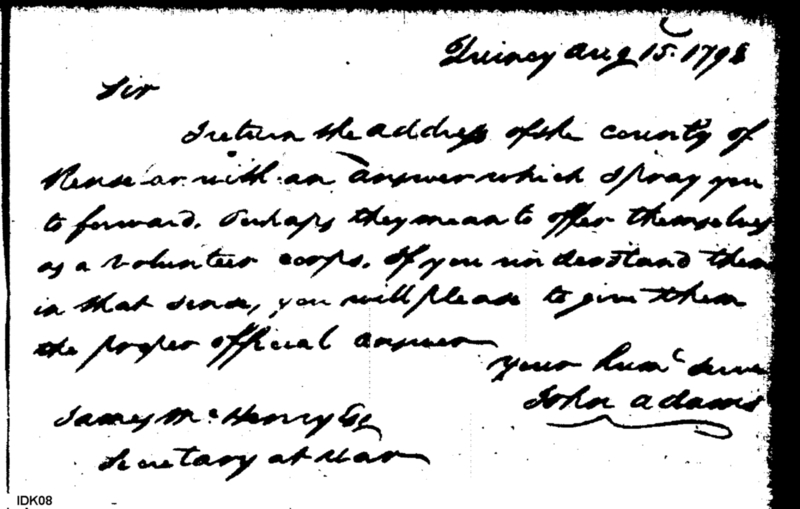 Quincy Aug 15. 1798
Sir
I return the address of the county of
with an answer which I pray you
to forward. Perhaps they mean to offer themselves
as a volunteer corps. If you understand them
in that sense, you will please to give them
the proper official answer
your humᵉ Serv
John Adams
James Mc Henry Esq
Secretary at War
IDK08